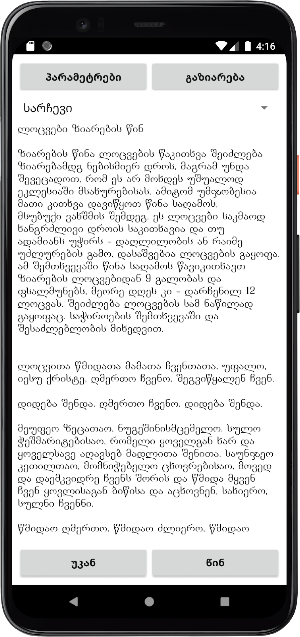 4:16
პარამეტრები
გაზიარება
სარჩევი
ლოცვები ზიარების წინ
ზიარების წინა ლოცვების წაკითხვა შეიძლება
ზიარებამდე ნებისმიერ დროს, მაგრამ უნდა
შევეცადოთ, რომ ეს არ მოხდეს უშუალოდ
ეკლესიაში მსახურებისას, ამიტომ უმჯობესია
მათი კითხვა დავიწყოთ წინა საღამოს,
მსუბუქი ვახშმის შემდეგ. ეს ლოცვები საკმაოდ
ხანგრძლივი დროის საკითხავია და თუ
ადამიანს უჭირს - დაღლილობის ან რაიმე
უძლურების გამო, დასაშვებია ლოცვების გაყოფა.
ამ შემთხვევაში წინა საღამოს წავიკითხავთ
ზიარების ლოცვებიდან 9 გალობას და
ფსალმუნებს, მეორე დღეს კი - დარჩენილ 12
ლოცვას. შეიძლება ლოცვების სამ ნაწილად
გაყოფაც, საჭიროების შემთხვევაში და
შესაძლებლობის მიხედვით.
ლოცვითა წმიდათა მამათა ჩვენთათა, უფალო,
იესუ ქრისტე, ღმერთო ჩვენო, შეგვიწყალენ ჩვენ.
დიდება შენდა, ღმერთო ჩვენო, დიდება შენდა.
მეუფეო ზეცათაო, ნუგეშინისმცემელო, სულო
ჭეშმარიტებისაო, რომელი ყოველგან ხარ და
ყოველსავე აღავსებ მადლითა შენითა, საუნჯეო
კეთილთაო, მომნიჭებელო ცხოვრებისაო, მოვედ
და დაემკვიდრე ჩვენს შორის და წმიდა მყვენ
ჩვენ ყოვლისაგან ბიწისა და აცხოვნენ, სახიერო,
სულნი ჩვენნი.
წმიდაო ღმერთო, წმიდაო ძლიერო, წმიდაო
უკან
წინ